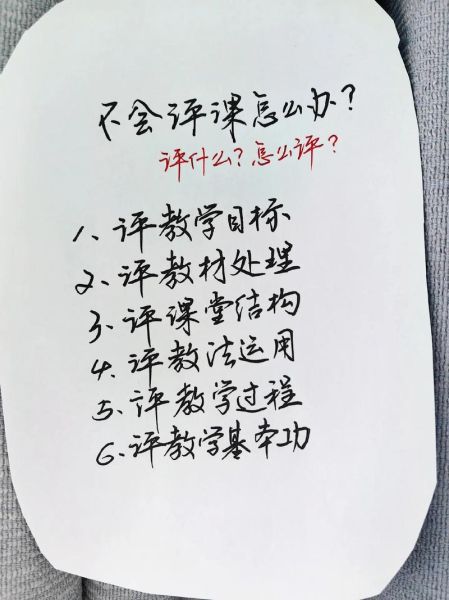 不会评课怎么办?
评什么?怎么评?
1、评教学目标
2、评教材处理
3、评课堂结构
4、评教法运用
5、评教学过程
6、评教学基本功